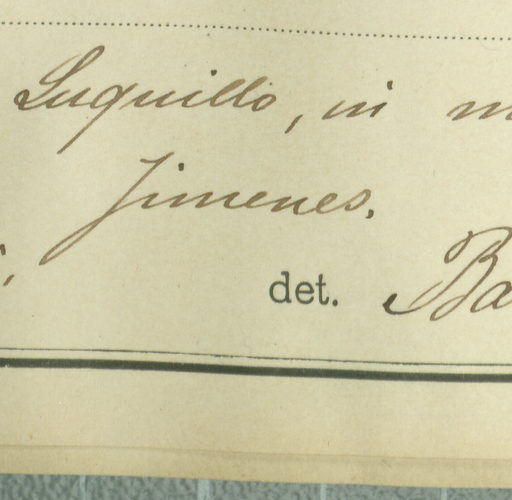 Luquillo, in m
Jimenes.
det. Ba